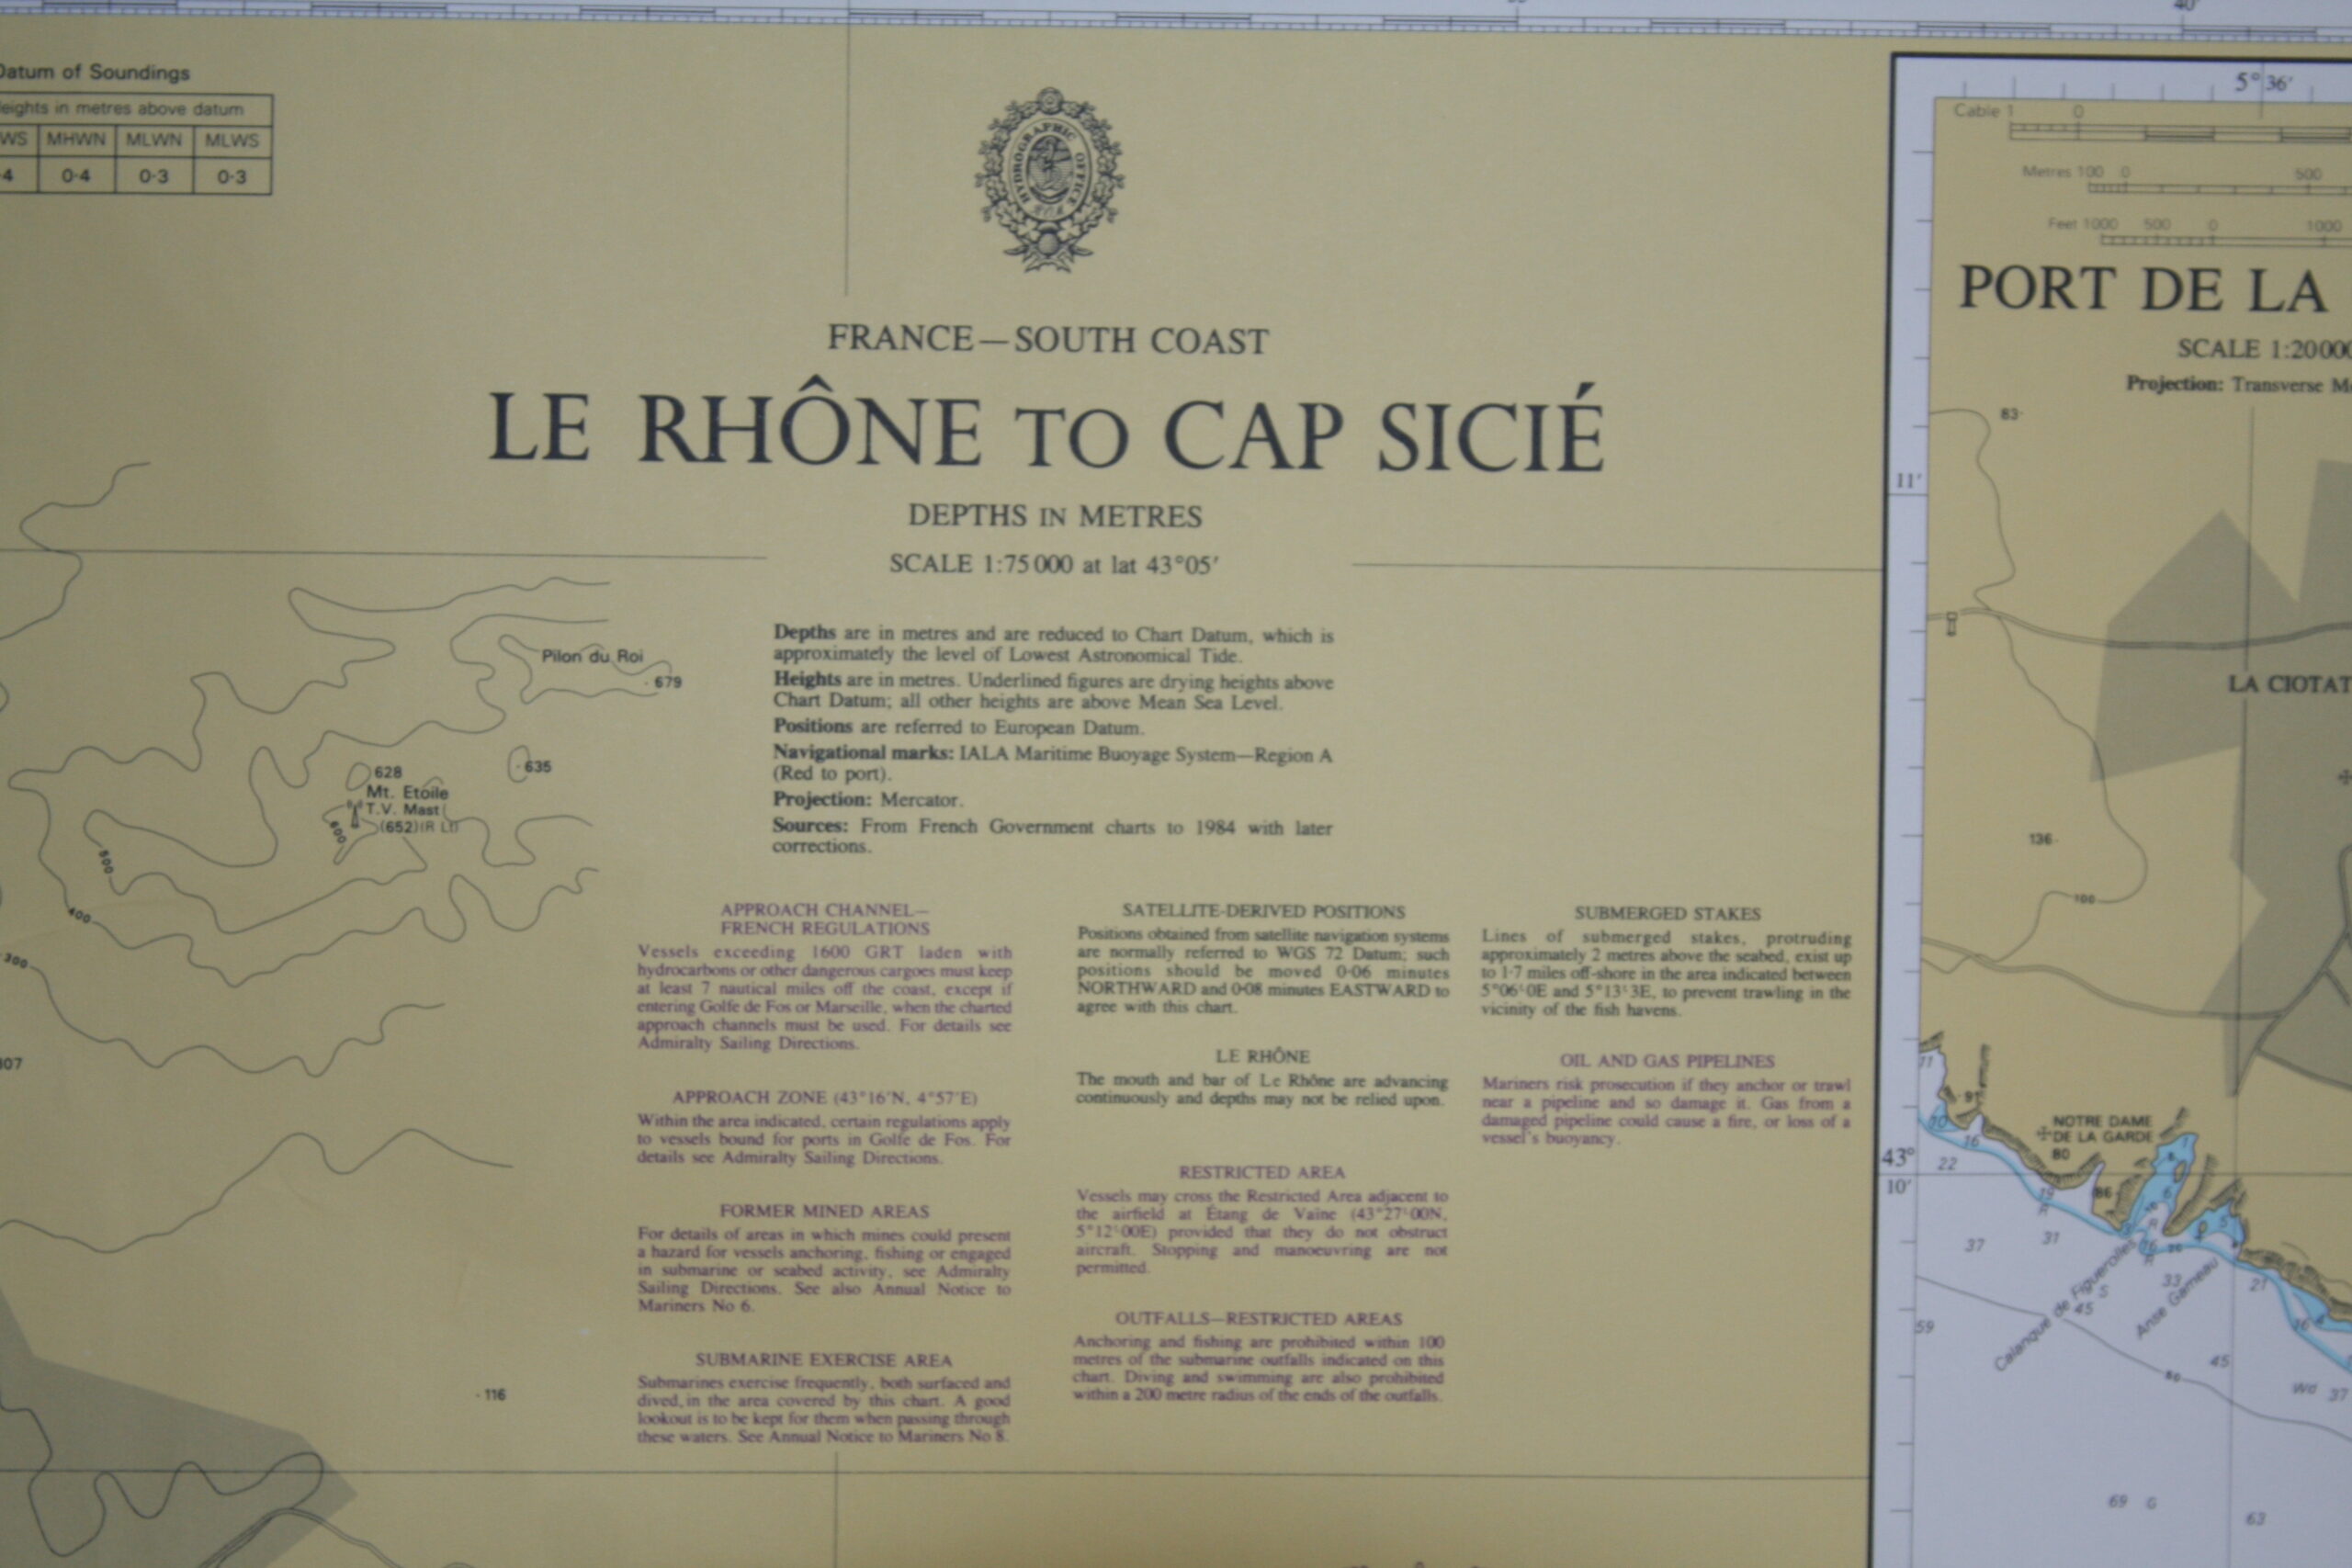 40'
Datum of Soundings
Heights in metres above datum
WS MHWN MLWN MLWS
4 0·4 0·3 0·3
HYDROGRAPHIC OFFICE
FRANCE—SOUTH COAST
LE RHÔNE TO CAP SICIÉ
DEPTHS IN METRES
SCALE 1:75 000 at lat 43°05′
Depths are in metres and are reduced to Chart Datum, which is
approximately the level of Lowest Astronomical Tide.
Heights are in metres. Underlined figures are drying heights above
Chart Datum; all other heights are above Mean Sea Level.
Positions are referred to European Datum.
Navigational marks: IALA Maritime Buoyage System—Region A
(Red to port).
Projection: Mercator.
Sources: From French Government charts to 1984 with later
corrections.
Pilon du Roi
679
628
635
Mt. Etoile
T.V. Mast
(652)(R Lt)
600
500
400
300
307
116
APPROACH CHANNEL—
FRENCH REGULATIONS
Vessels exceeding 1600 GRT laden with
hydrocarbons or other dangerous cargoes must keep
at least 7 nautical miles off the coast, except if
entering Golfe de Fos or Marseille, when the charted
approach channels must be used. For details see
Admiralty Sailing Directions.
APPROACH ZONE (43°16′N, 4°57′E)
Within the area indicated, certain regulations apply
to vessels bound for ports in Golfe de Fos. For
details see Admiralty Sailing Directions.
FORMER MINED AREAS
For details of areas in which mines could present
a hazard for vessels anchoring, fishing or engaged
in submarine or seabed activity, see Admiralty
Sailing Directions. See also Annual Notice to
Mariners No 6.
SUBMARINE EXERCISE AREA
Submarines exercise frequently, both surfaced and
dived, in the area covered by this chart. A good
lookout is to be kept for them when passing through
these waters. See Annual Notice to Mariners No 8.
SATELLITE-DERIVED POSITIONS
Positions obtained from satellite navigation systems
are normally referred to WGS 72 Datum; such
positions should be moved 0·06 minutes
NORTHWARD and 0·08 minutes EASTWARD to
agree with this chart.
LE RHÔNE
The mouth and bar of Le Rhône are advancing
continuously and depths may not be relied upon.
RESTRICTED AREA
Vessels may cross the Restricted Area adjacent to
the airfield at Étang de Vaine (43°27′·00N,
5°12′·00E) provided that they do not obstruct
aircraft. Stopping and manoeuvring are not
permitted.
OUTFALLS—RESTRICTED AREAS
Anchoring and fishing are prohibited within 100
metres of the submarine outfalls indicated on this
chart. Diving and swimming are also prohibited
within a 200 metre radius of the ends of the outfalls.
SUBMERGED STAKES
Lines of submerged stakes, protruding
approximately 2 metres above the seabed, exist up
to 1·7 miles off-shore in the area indicated between
5°06′·0E and 5°13′·3E, to prevent trawling in the
vicinity of the fish havens.
OIL AND GAS PIPELINES
Mariners risk prosecution if they anchor or trawl
near a pipeline and so damage it. Gas from a
damaged pipeline could cause a fire, or loss of a
vessel's buoyancy.
5°36′
Cable 1 0
Metres 100 0 500
Feet 1000 500 0 1000
PORT DE LA
SCALE 1:20000
Projection: Transverse
83
11′
LA CIOTAT
136
100
91
NOTRE DAME
DE LA GARDE
80
86
43°
10′
16
22
19
31
37
33
21
59
45
Calanque de Figuerolles
Anse Gameau
45
50
Wd 37
69 G
63